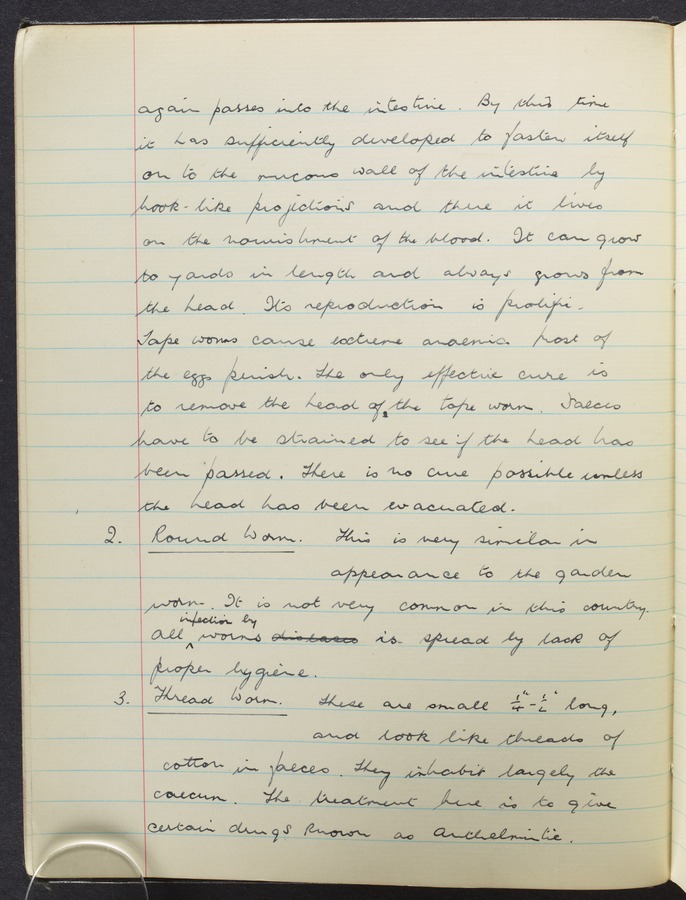 again passes into the intestine. By this time
it has sufficiently developed to fasten itself
on to the mucous wall of the intestine by
hook-like projections and there it lives
on the nourishment of the blood. It can grow
to yards in length and always grows from
the head. Its reproduction is prolific.
Tape worms cause extreme anaemia most of
the eggs perish. The only effective cure is
to remove the head of the tape worm. Faeces
have to be strained to see if the head has
been passed. There is no cure possible unless
the head has been evacuated.
2. Round Worm. This is very similar in
appearance to the garden
worm. It is not very common in this country.
infection by
All ^ worms diseases is spread by lack of
proper hygiene.
3. Thread Worm. These are small 1/4" - 1/2" long,
and look like threads of
cotton in faeces. They inhabit largely the
caecum. The treatment here is to give
certain drugs known as Anthelmintic.